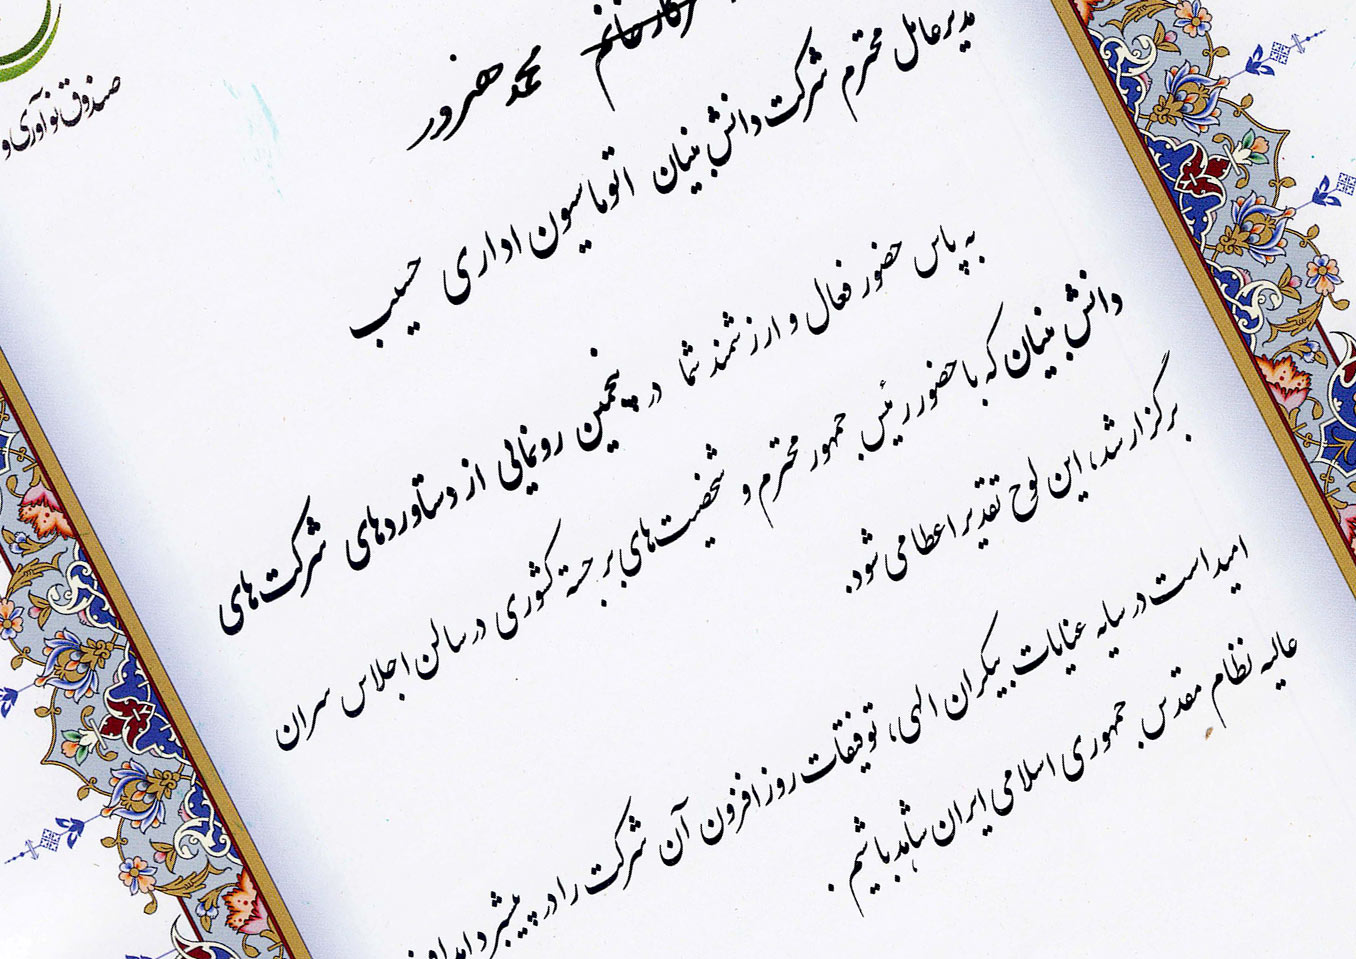 صندوق نوآوری و
سرکار خانم محمد هنرور
مدیرعامل محترم شرکت دانش بنیان اتوماسیون اداری حسیب
به پاس حضور فعال و ارزشمند شما در پنجمین رونمایی از دستاوردهای شرکت های
دانش بنیان که با حضور رئیس جمهور محترم و شخصیت های برجسته کشوری در سالن اجلاس سران
برگزار شد، این لوح تقدیر اعطا می شود.
امید است در سایه عنایات بیکران الهی، توفیقات روز افزون آن شرکت را در پیشبرد اهداف
عالیه نظام مقدس جمهوری اسلامی ایران شاهد باشیم.